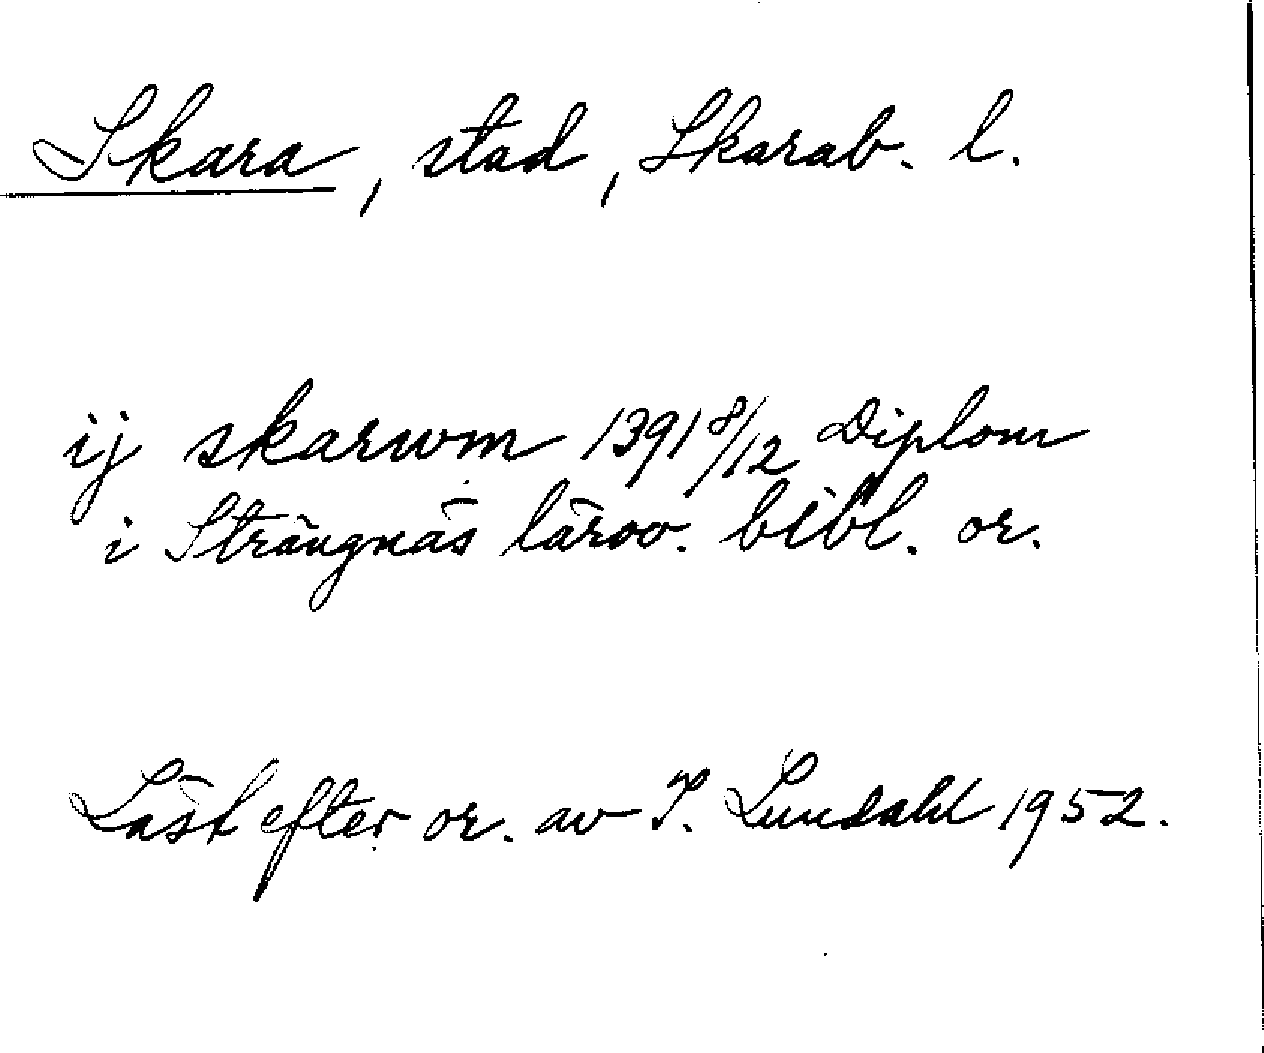 Skara, stad, Skarab. l.
ij skarwm 1391 8/12 Diplom
i Strängnäs lärov. bibl. or.
Läst efter or. av I. Lundahl 1952.